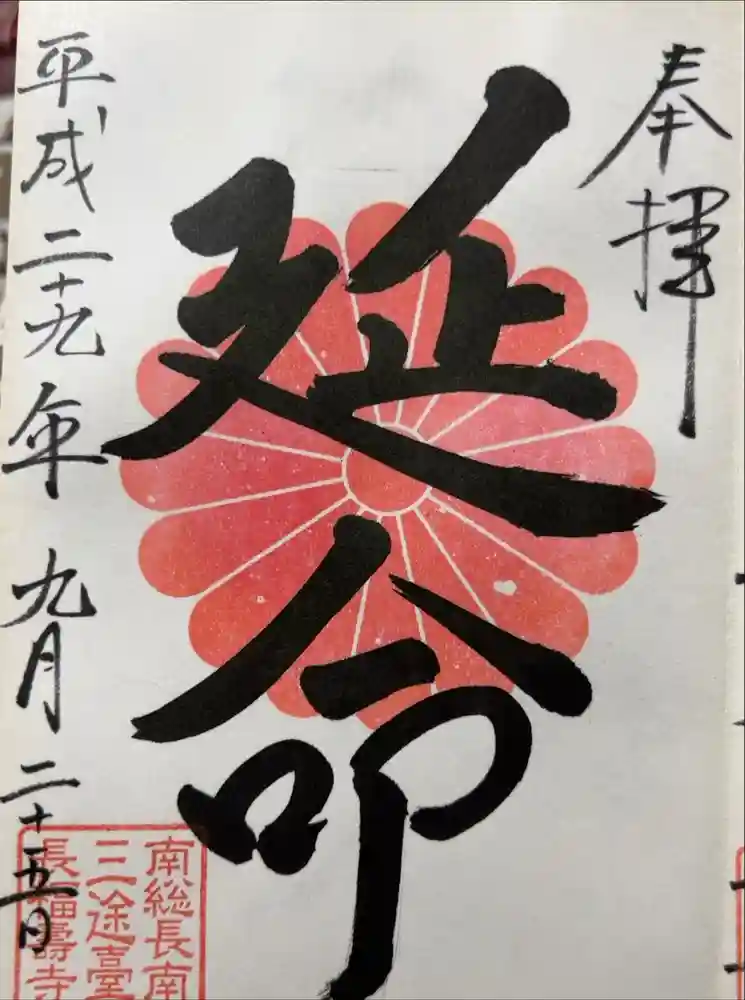 奉拝
延命
平成二十九年九月二十五日
南総長南
三途臺
長福壽寺